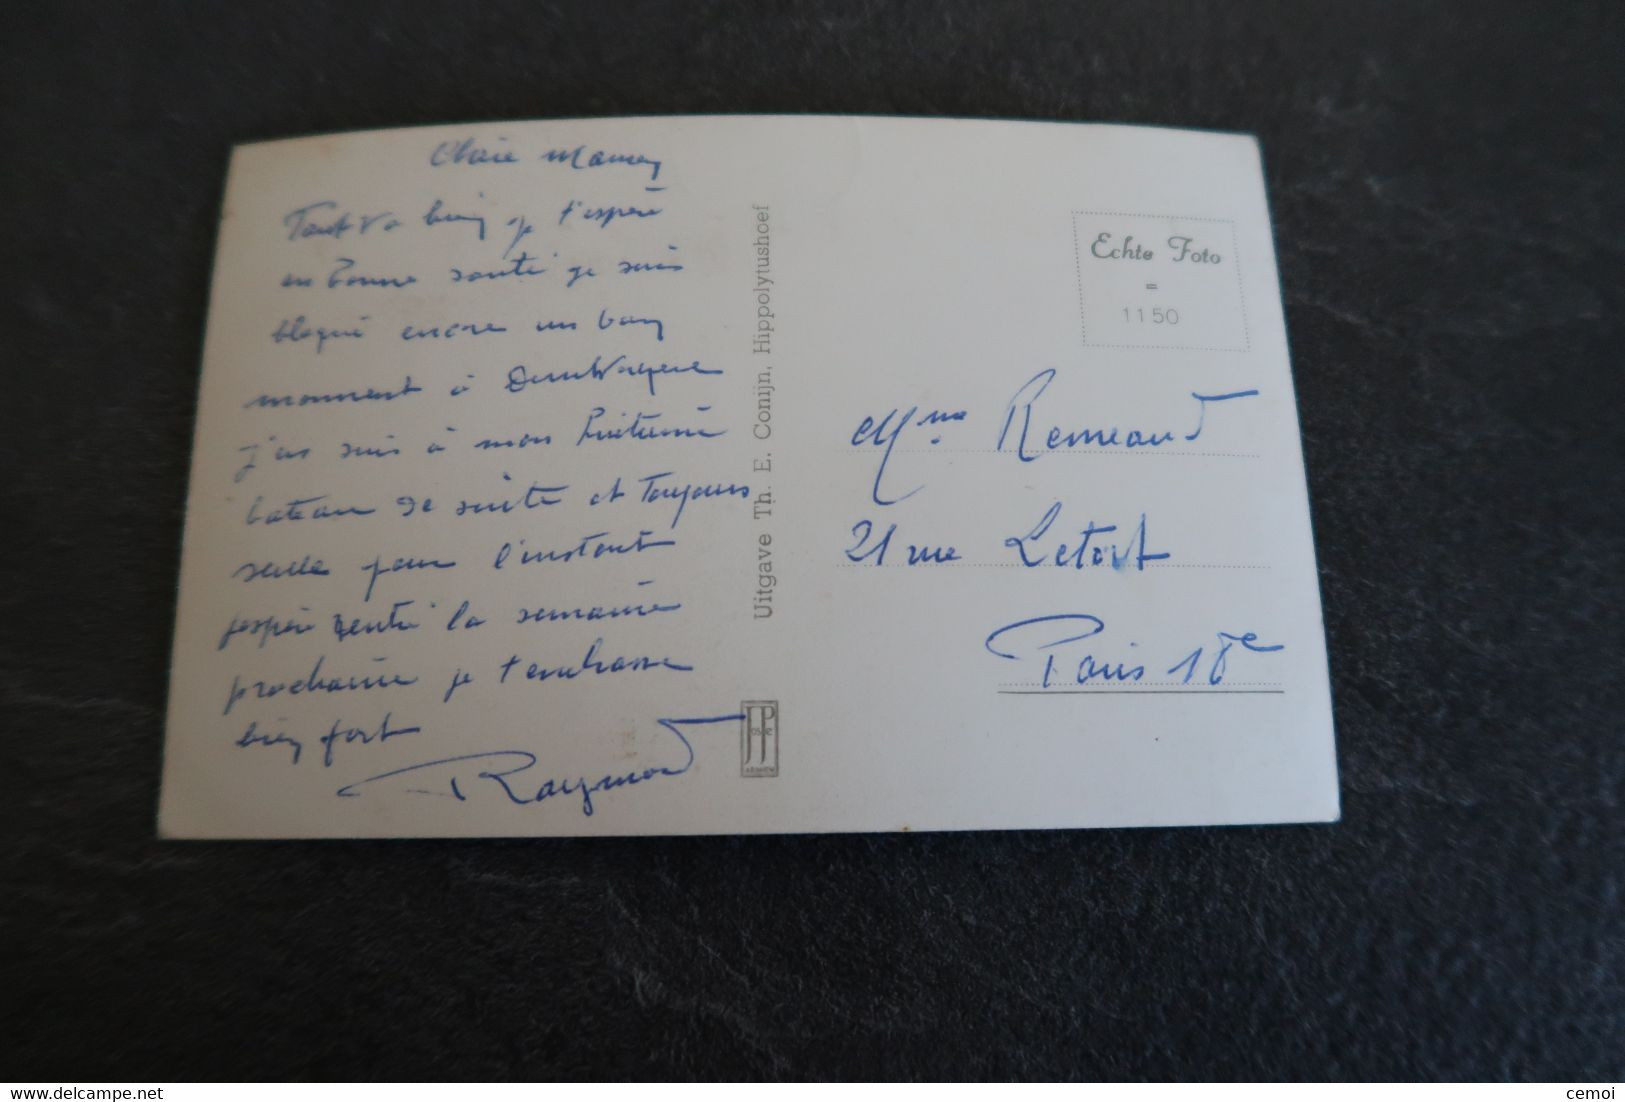 Chère Mamey
Tout va bien je t'espère
en bonne santé je suis
bloqué encore un bon
moment à
j'en suis à mon huitième
bateau de suite et Toujours
seule pour l'instant
j'espère rentré la semaine
prochaine je t'embrasse
bien fort
Raymond
Uitgave Th. E. Conijn, Hippolytushoef
JosPé
Echte Foto
=
1150
Mme Remeaud
21 rue Letort
Paris 18e
Delcampe.net
cemoi